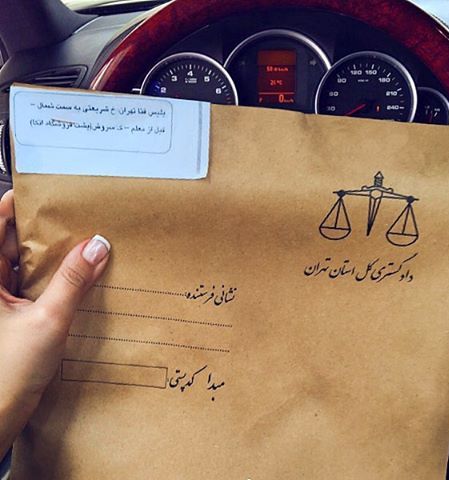 پلیس فتا تهران: خ شریعتی به سمت شمال –
قبل از معلم – ک سروش(پشت فروشگاه اتکا)
دادگستری کل استان تهران
نشانی فرستنده:
مبدا کدپستی:
3 4 5 6
0 km/h
90 120 150 180 240